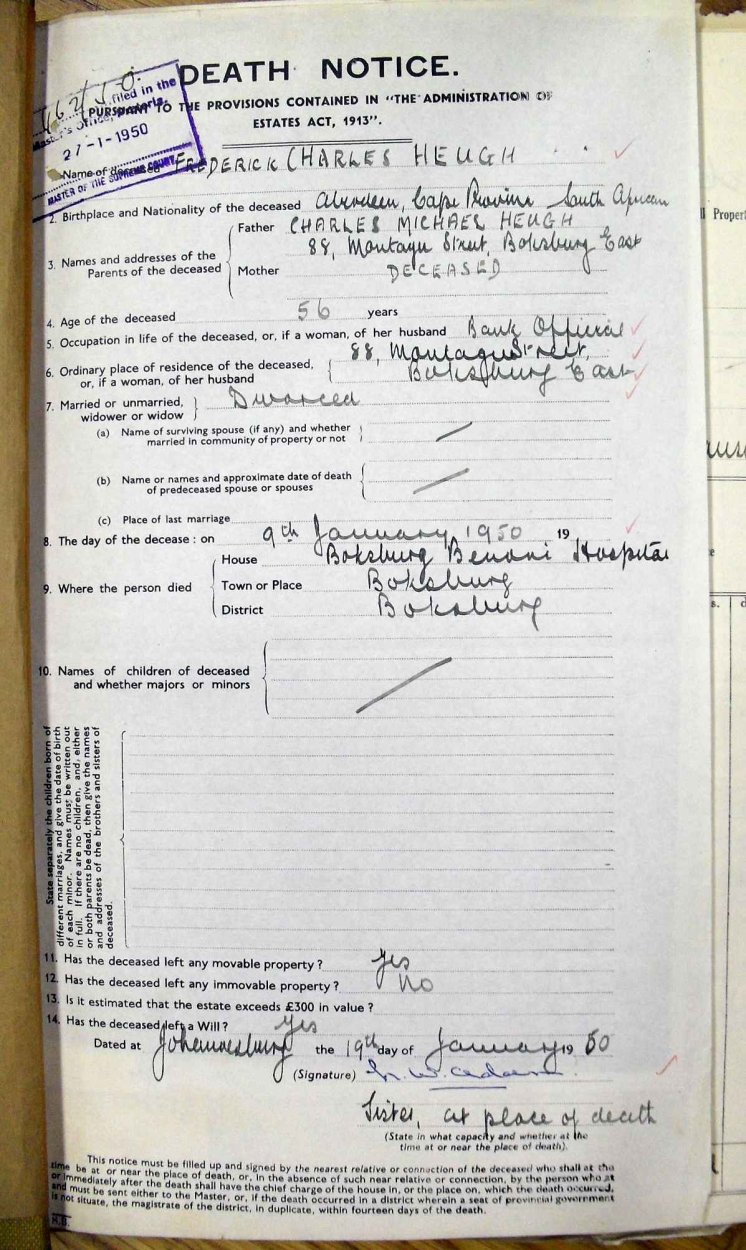 DEATH NOTICE.
PURSUANT TO THE PROVISIONS CONTAINED IN "THE ADMINISTRATION OF
ESTATES ACT, 1913".
filed in the
Master's Office, Pretoria.
27-1-1950
MASTER OF THE SUPREME COURT
Name of deceased FREDERICK CHARLES HEUGH
2. Birthplace and Nationality of the deceased Aberdeen, Cape Province South African
3. Names and addresses of the Parents of the deceased
Father CHARLES MICHAEL HEUGH
88, Montagu Street, Boksburg East
Mother DECEASED
4. Age of the deceased 56 years
5. Occupation in life of the deceased, or, if a woman, of her husband Bank Official
6. Ordinary place of residence of the deceased, 88, Montagu Street,
or, if a woman, of her husband Boksburg East
7. Married or unmarried, widower or widow Divorced
(a) Name of surviving spouse (if any) and whether
married in community of property or not
(b) Name or names and approximate date of death
of predeceased spouse or spouses
(c) Place of last marriage
8. The day of the decease : on 9th January 1950 19
9. Where the person died
House Boksburg Benoni Hospital
Town or Place Boksburg
District Boksburg
10. Names of children of deceased
and whether majors or minors
State separately the children born of
different marriages, and give the date of birth
of each minor. Names must be written out
in full. If there are no children, and, either
or both parents be dead, then give the names
and addresses of the brothers and sisters of
deceased.
11. Has the deceased left any movable property ? Yes
12. Has the deceased left any immovable property ? No
13. Is it estimated that the estate exceeds £300 in value ?
14. Has the deceased left a Will ? Yes
Dated at Johannesburg the 19th day of January 19 50
(Signature)
Sister, at place of death
(State in what capacity and whether at the
time at or near the place of death).
This notice must be filled up and signed by the nearest relative or connection of the deceased who shall at the
time be at or near the place of death, or, in the absence of such near relative or connection, by the person who at
or immediately after the death shall have the chief charge of the house in, or the place on, which the death occurred,
and must be sent either to the Master, or, if the death occurred in a district wherein a seat of provincial government
is not situate, the magistrate of the district, in duplicate, within fourteen days of the death.